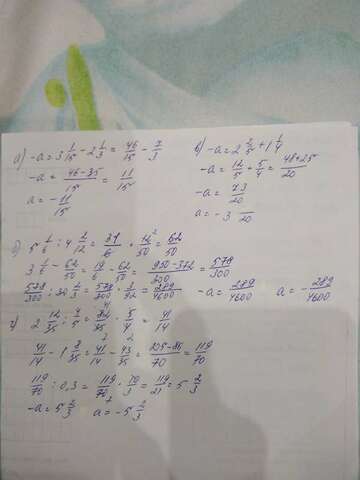 а) -a = 3 1/15 - 2 1/3 = 46/15 - 7/3
-a = 46-35/15 = 11/15
a = -11/15
в) -a = 2 2/5 + 1 1/4
-a = 12/5 + 5/4 = 48+25/20
-a = 73/20
a = -3 /20
б) 5 1/6 : 4 2/12 = 31/6 · 12/50 = 62/50
3 1/6 - 62/50 = 19/6 - 62/50 = 950-372/300 = 578/300
578/300 : 30 2/3 = 578/300 · 3/92 = 289/4600 -a = 289/4600 a = -289/4600
г) 2 12/35 : 4/5 = 82/35 · 5/4 = 41/14
41/14 - 1 8/35 = 41/14 - 43/35 = 205-86/70 = 119/70
119/70 : 0,3 = 119/70 · 10/3 = 119/21 = 5 2/3
-a = 5 2/3 a = -5 2/3